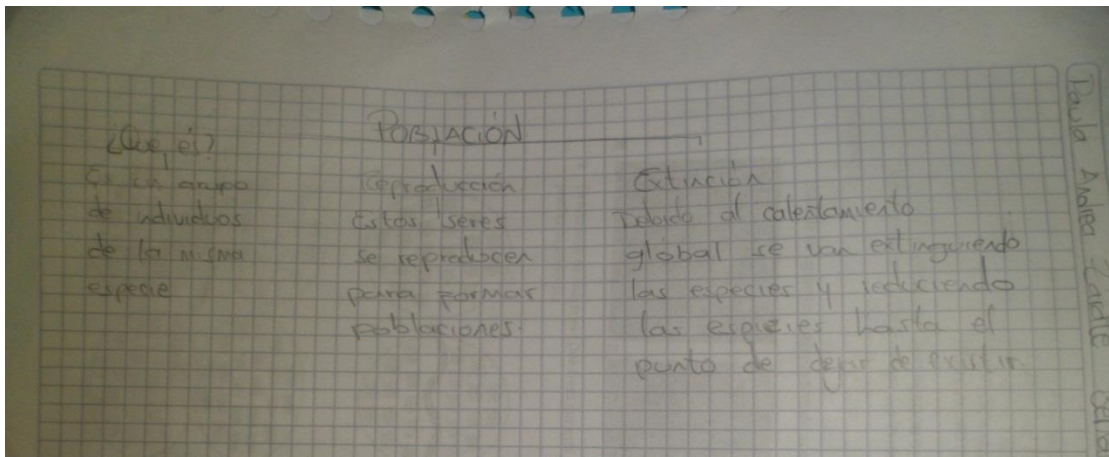 POBLACIÓN
¿Que es?
Es un grupo
de individuos
de la misma
especie
Reproducción
Estos seres
se reproducen
para formar
poblaciones.
Extinción
Debido al calentamiento
global se van extinguiendo
las especies y reduciendo
las especies hasta el
punto de dejar de existir.
Paula Andrea